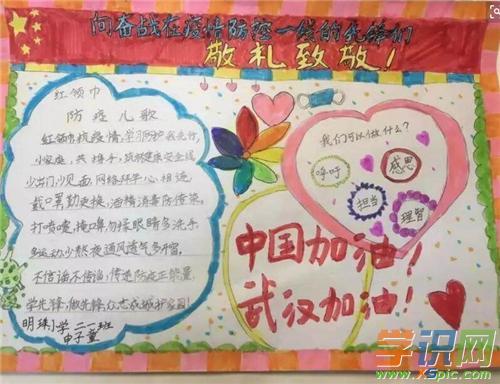 向奋战在疫情防控一线的先锋们
敬礼致敬!
红领巾
防疫儿歌
红领巾抗疫情,学习防护我先行,
小家庭,共携手,筑牢健康安全线
少出门少见面,网络拜年心相连
戴口罩勤更换,酒精消毒防传染,
打喷嚏,掩口鼻勿揉眼睛多洗手,
多运动少熬夜通风透气多开窗,
不信谣不传谣,传递防疫正能量,
学先锋,做先锋,众志成城护家园!
明珠小学二一班
申子童
我们可以做什么?
呼吁
感恩
担当
理智
中国加油!
武汉加油!
学识网
www.xSpic.com